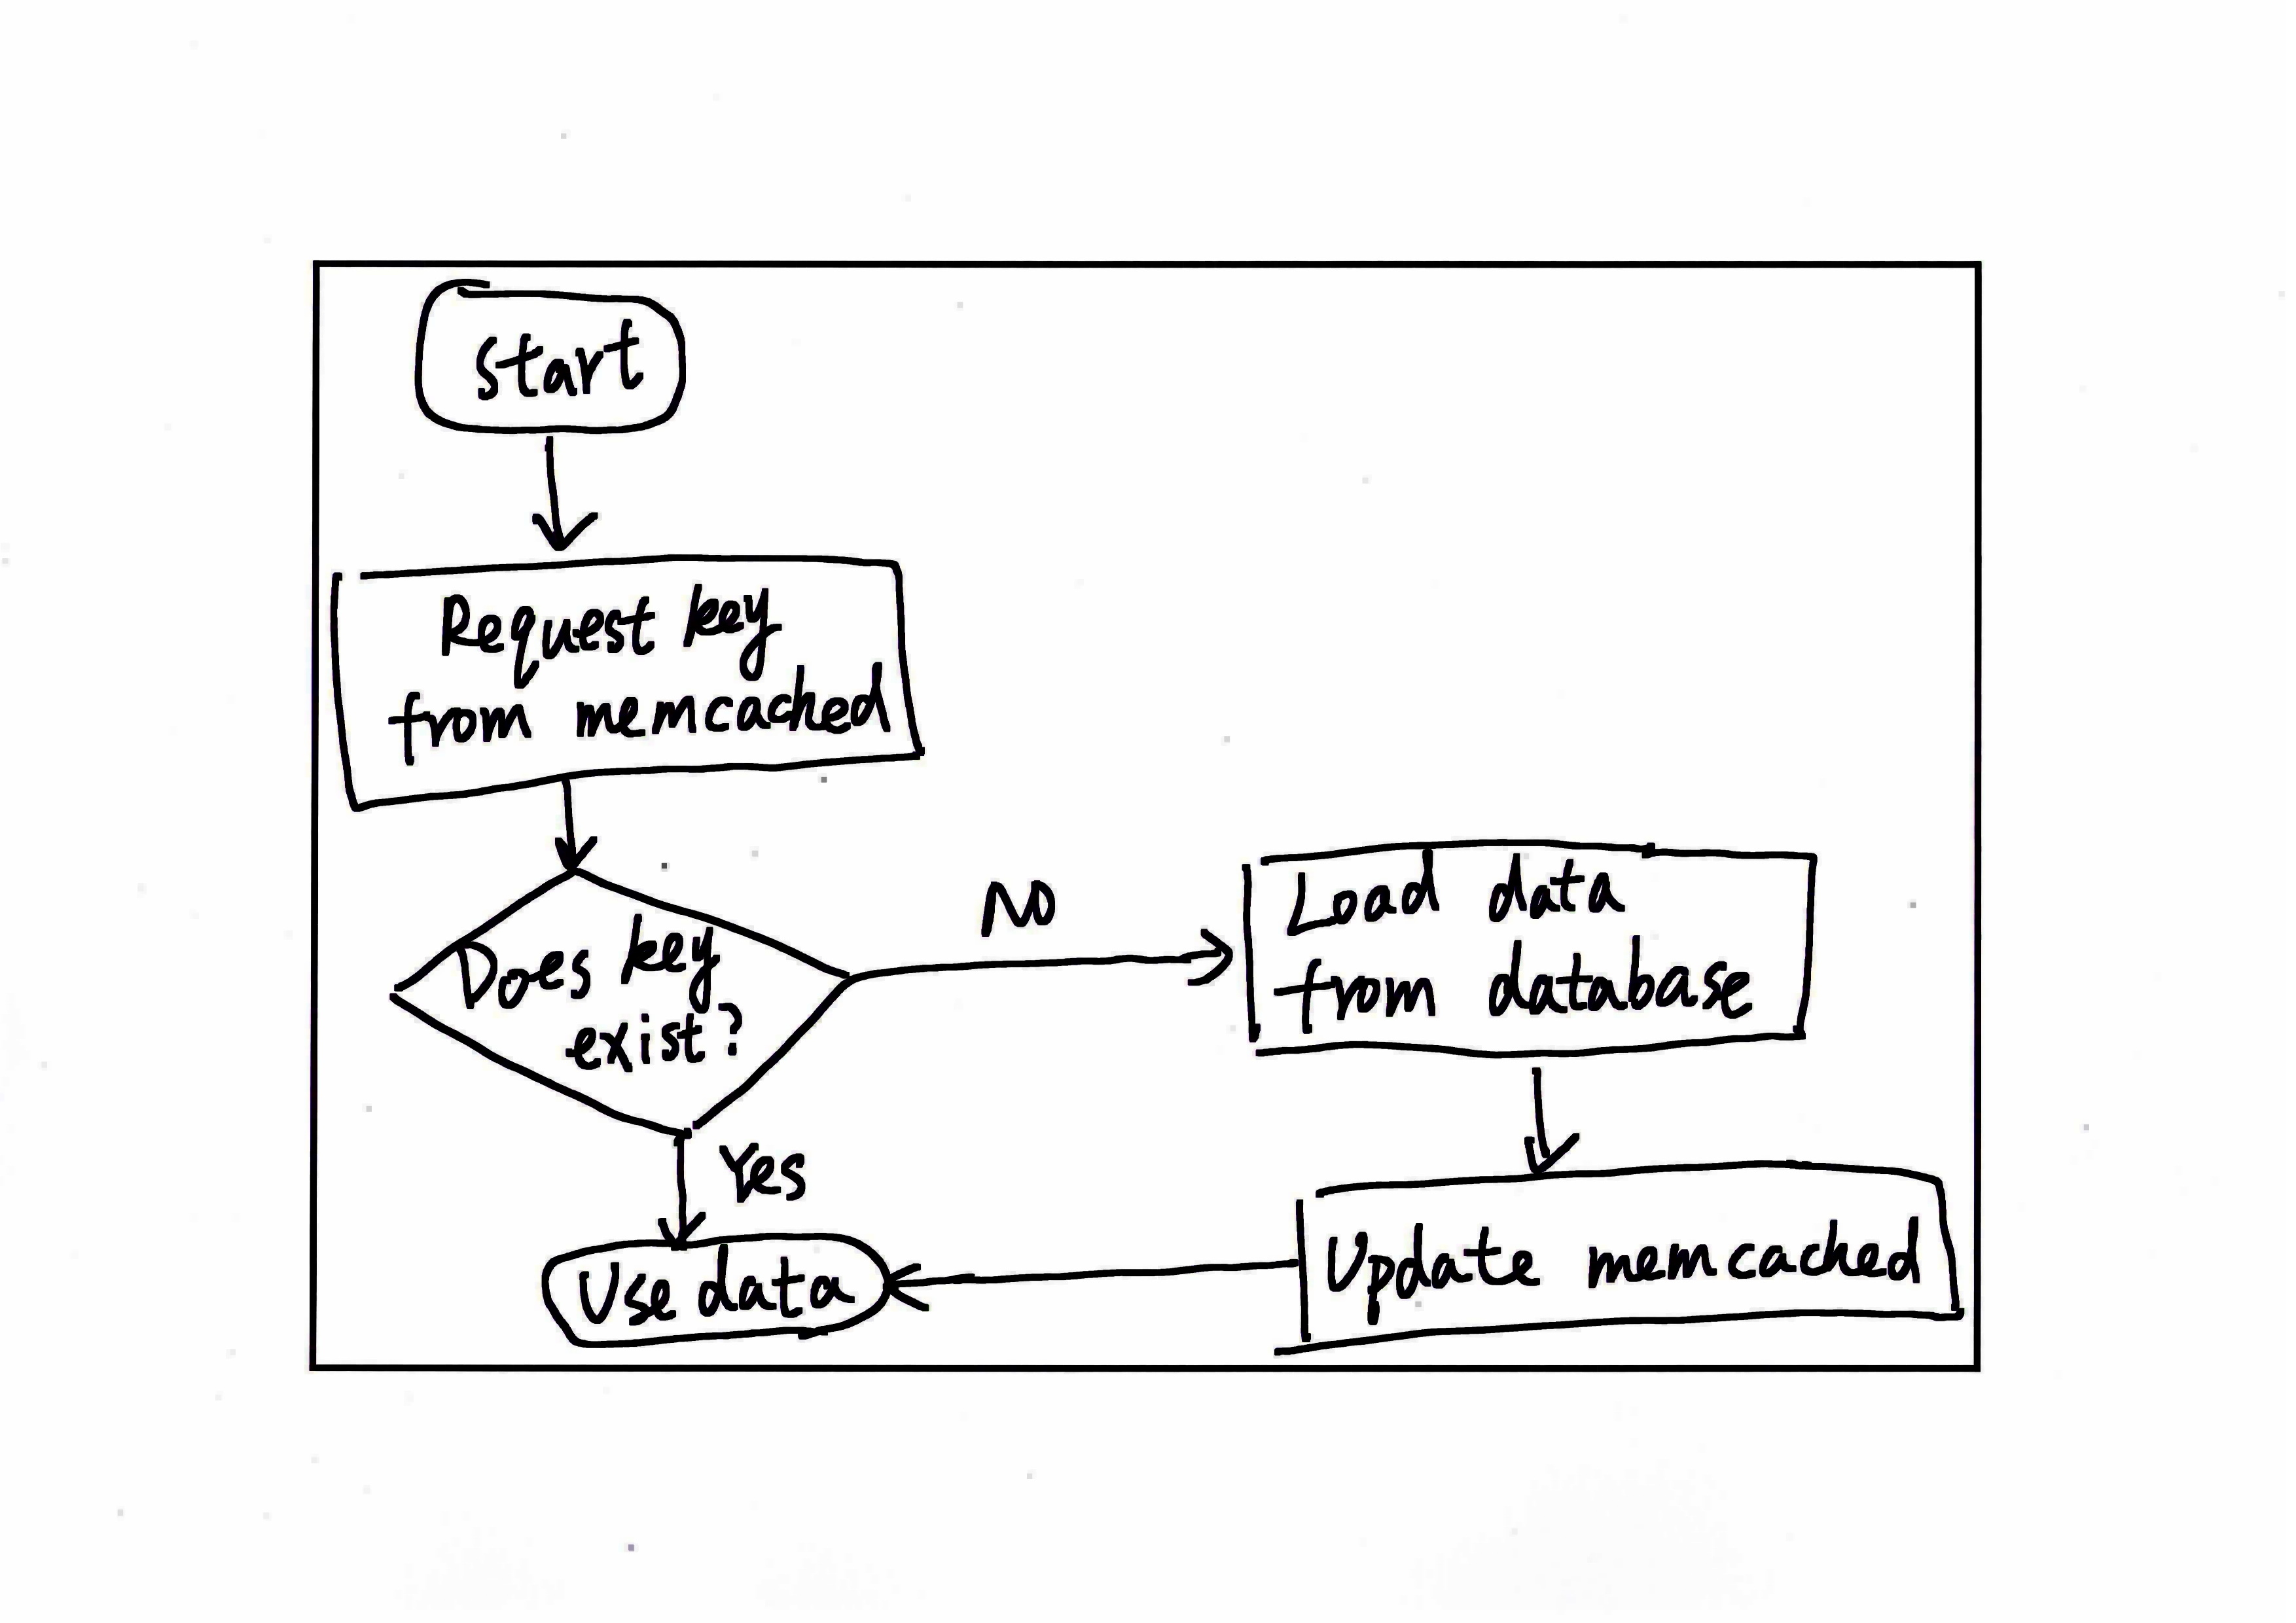 start
Request key
from memcached
Does key
exist?
NO
Load data
from database
Yes
Use data
Update memcached